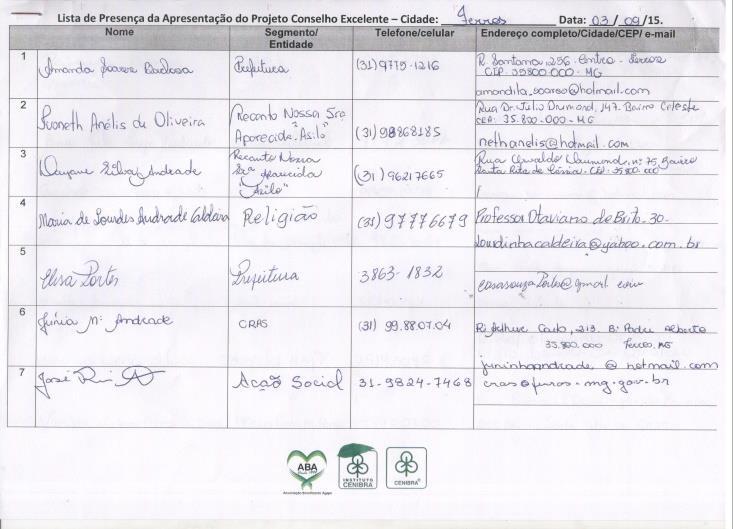 Lista de Presença da Apresentação do Projeto Conselho Excelente – Cidade: Ferros Data: 03/09/15.
Nome Segmento/ Entidade Telefone/celular Endereço completo/Cidade/CEP/ e-mail
1 Amanda Soares Barbosa Prefeitura (31) 9775-1216 R. Santana, 256. Centro - Ferros
CEP. 35800.000 - MG
amandila_soares@hotmail.com
2 Ivoneth Anélis de Oliveira Recanto Nossa Sra
Aparecida "Asilo" (31) 98868185 Rua Dr. Julio Drumond, 147. Bairro Celeste
CEP: 35.800.000 - MG
nethanelis@hotmail.com
3 Dayane Silva Andrade Recanto Nossa
Srª Aparecida
"Asilo" (31) 96217665 Rua Oswaldo Drumond, nº 75, Bairro
Santa Rita de Cássia. CEP. 35800.000
4 Maria de Lourdes Andrade Caldeira Religião (31) 97776679 Professor Otaviano de Brito. 30.
lourdinhacaldeira@yahoo.com.br
5 Elisa Portes Prefeitura 3863-1832
6 Júnia Mª Andrade CRAS (31) 99.8807.04 R. Arthur Couto, 213. Bº Padre Alberto
35.800.000 Ferros, MG
juninhaandrade@hotmail.com
7 José Rui Ação Social 31-9824-7468 cras@ferros.mg.gov.br
ABA
Associação Beneficente Ágape
INSTITUTO CENIBRA
CENIBRA